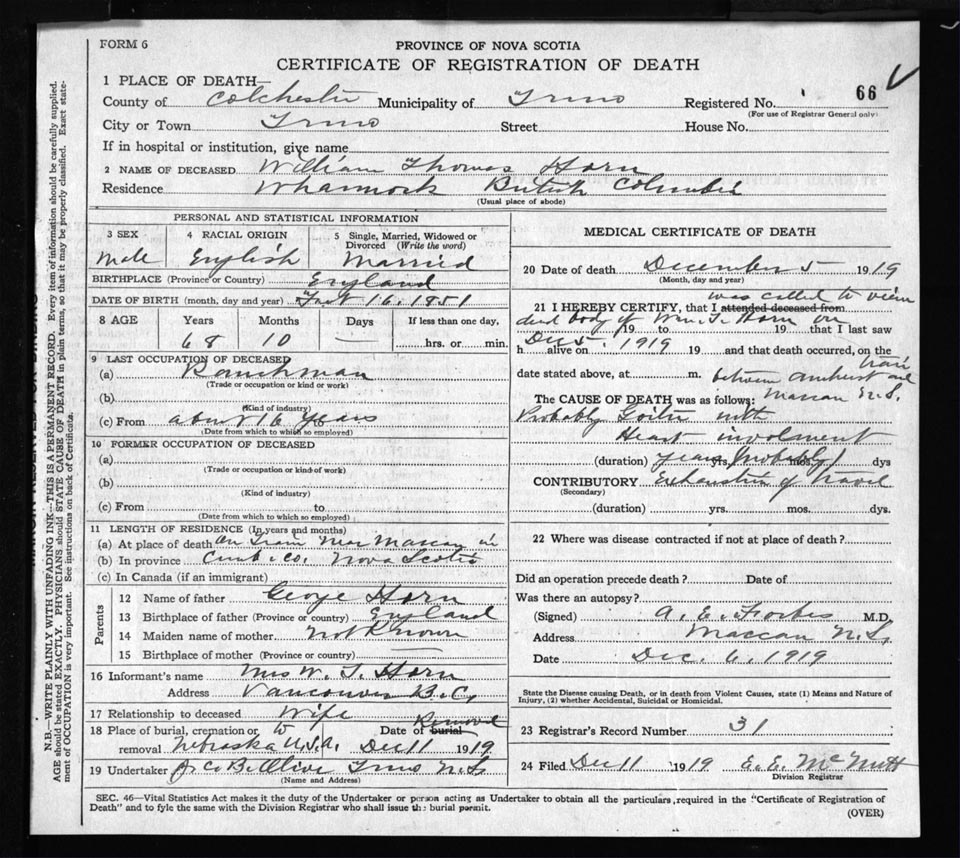 FORM 6
PROVINCE OF NOVA SCOTIA
CERTIFICATE OF REGISTRATION OF DEATH
1 PLACE OF DEATH—
County of Colchester Municipality of Truro Registered No. 66
(For use of Registrar General only)
City or Town Truro Street House No.
If in hospital or institution, give name
2 NAME OF DECEASED William Thomas Horn
Residence Whannock British Columbia
(Usual place of abode)
PERSONAL AND STATISTICAL INFORMATION
3 SEX 4 RACIAL ORIGIN 5 Single, Married, Widowed or Divorced (Write the word)
Male English Married
BIRTHPLACE (Province or Country) England
DATE OF BIRTH (month, day and year) 16. 1851
8 AGE Years Months Days If less than one day,
68 10 — hrs. or min.
9 LAST OCCUPATION OF DECEASED
(a) Ranchman
(Trade or occupation or kind or work)
(b)
(Kind of industry)
(c) From about 16 Years
(Date from which to which so employed)
10 FORMER OCCUPATION OF DECEASED
(a)
(Trade or occupation or kind of work)
(b)
(Kind of industry)
(c) From to
(Date from which to which so employed)
11 LENGTH OF RESIDENCE (In years and months)
(a) At place of death On Train Near Maccan in
(b) In province Cumb. Co. Nova Scotia
(c) In Canada (if an immigrant)
Parents
12 Name of father George Horn
13 Birthplace of father (Province or country) England
14 Maiden name of mother Not Known
15 Birthplace of mother (Province or country) —
16 Informant's name Mrs W. T. Horn
Address Vancouver B.C.
17 Relationship to deceased Wife
Removal
18 Place of burial, cremation or to Date of burial
removal Nebraska U.S.A. Dec 11 1919
19 Undertaker Truro N.S.
(Name and Address)
MEDICAL CERTIFICATE OF DEATH
20 Date of death December 5 1919
(Month, day and year)
was called to view
21 I HEREBY CERTIFY, that I attended deceased from
dead body of Wm. T. Horn on 19 to 19 that I last saw
h alive on Dec 5. 1919 19 and that death occurred, on the
train
date stated above, at m. between Amherst and
The CAUSE OF DEATH was as follows: Maccan N.S.
Probably Goiter with
Heart involment
(duration) years yrs. (Probably) mos. dys
CONTRIBUTORY Exhaustion of travel
(Secondary)
(duration) yrs. mos. dys.
22 Where was disease contracted if not at place of death?
Did an operation precede death? Date of
Was there an autopsy?
(Signed) A. E. Forbes M.D.
Address Maccan N.S.
Date Dec. 6. 1919
State the Disease causing Death, or in death from Violent Causes, state (1) Means and Nature of
Injury, (2) whether Accidental, Suicidal or Homicidal.
23 Registrar's Record Number 31
24 Filed Dec 11 1919 E. E. McNutt
Division Registrar
SEC. 46—Vital Statistics Act makes it the duty of the Undertaker or person acting as Undertaker to obtain all the particulars required in the "Certificate of Registration of
Death" and to fyle the same with the Division Registrar who shall issue the burial permit.
(OVER)
N.B.—WRITE PLAINLY WITH UNFADING INK—THIS IS A PERMANENT RECORD. Every item of information should be carefully supplied.
AGE should be stated EXACTLY. PHYSICIANS should STATE CAUSE OF DEATH in plain terms, so that it may be properly classified. Exact state-
ment of OCCUPATION is very important. See instructions on back of Certificate.